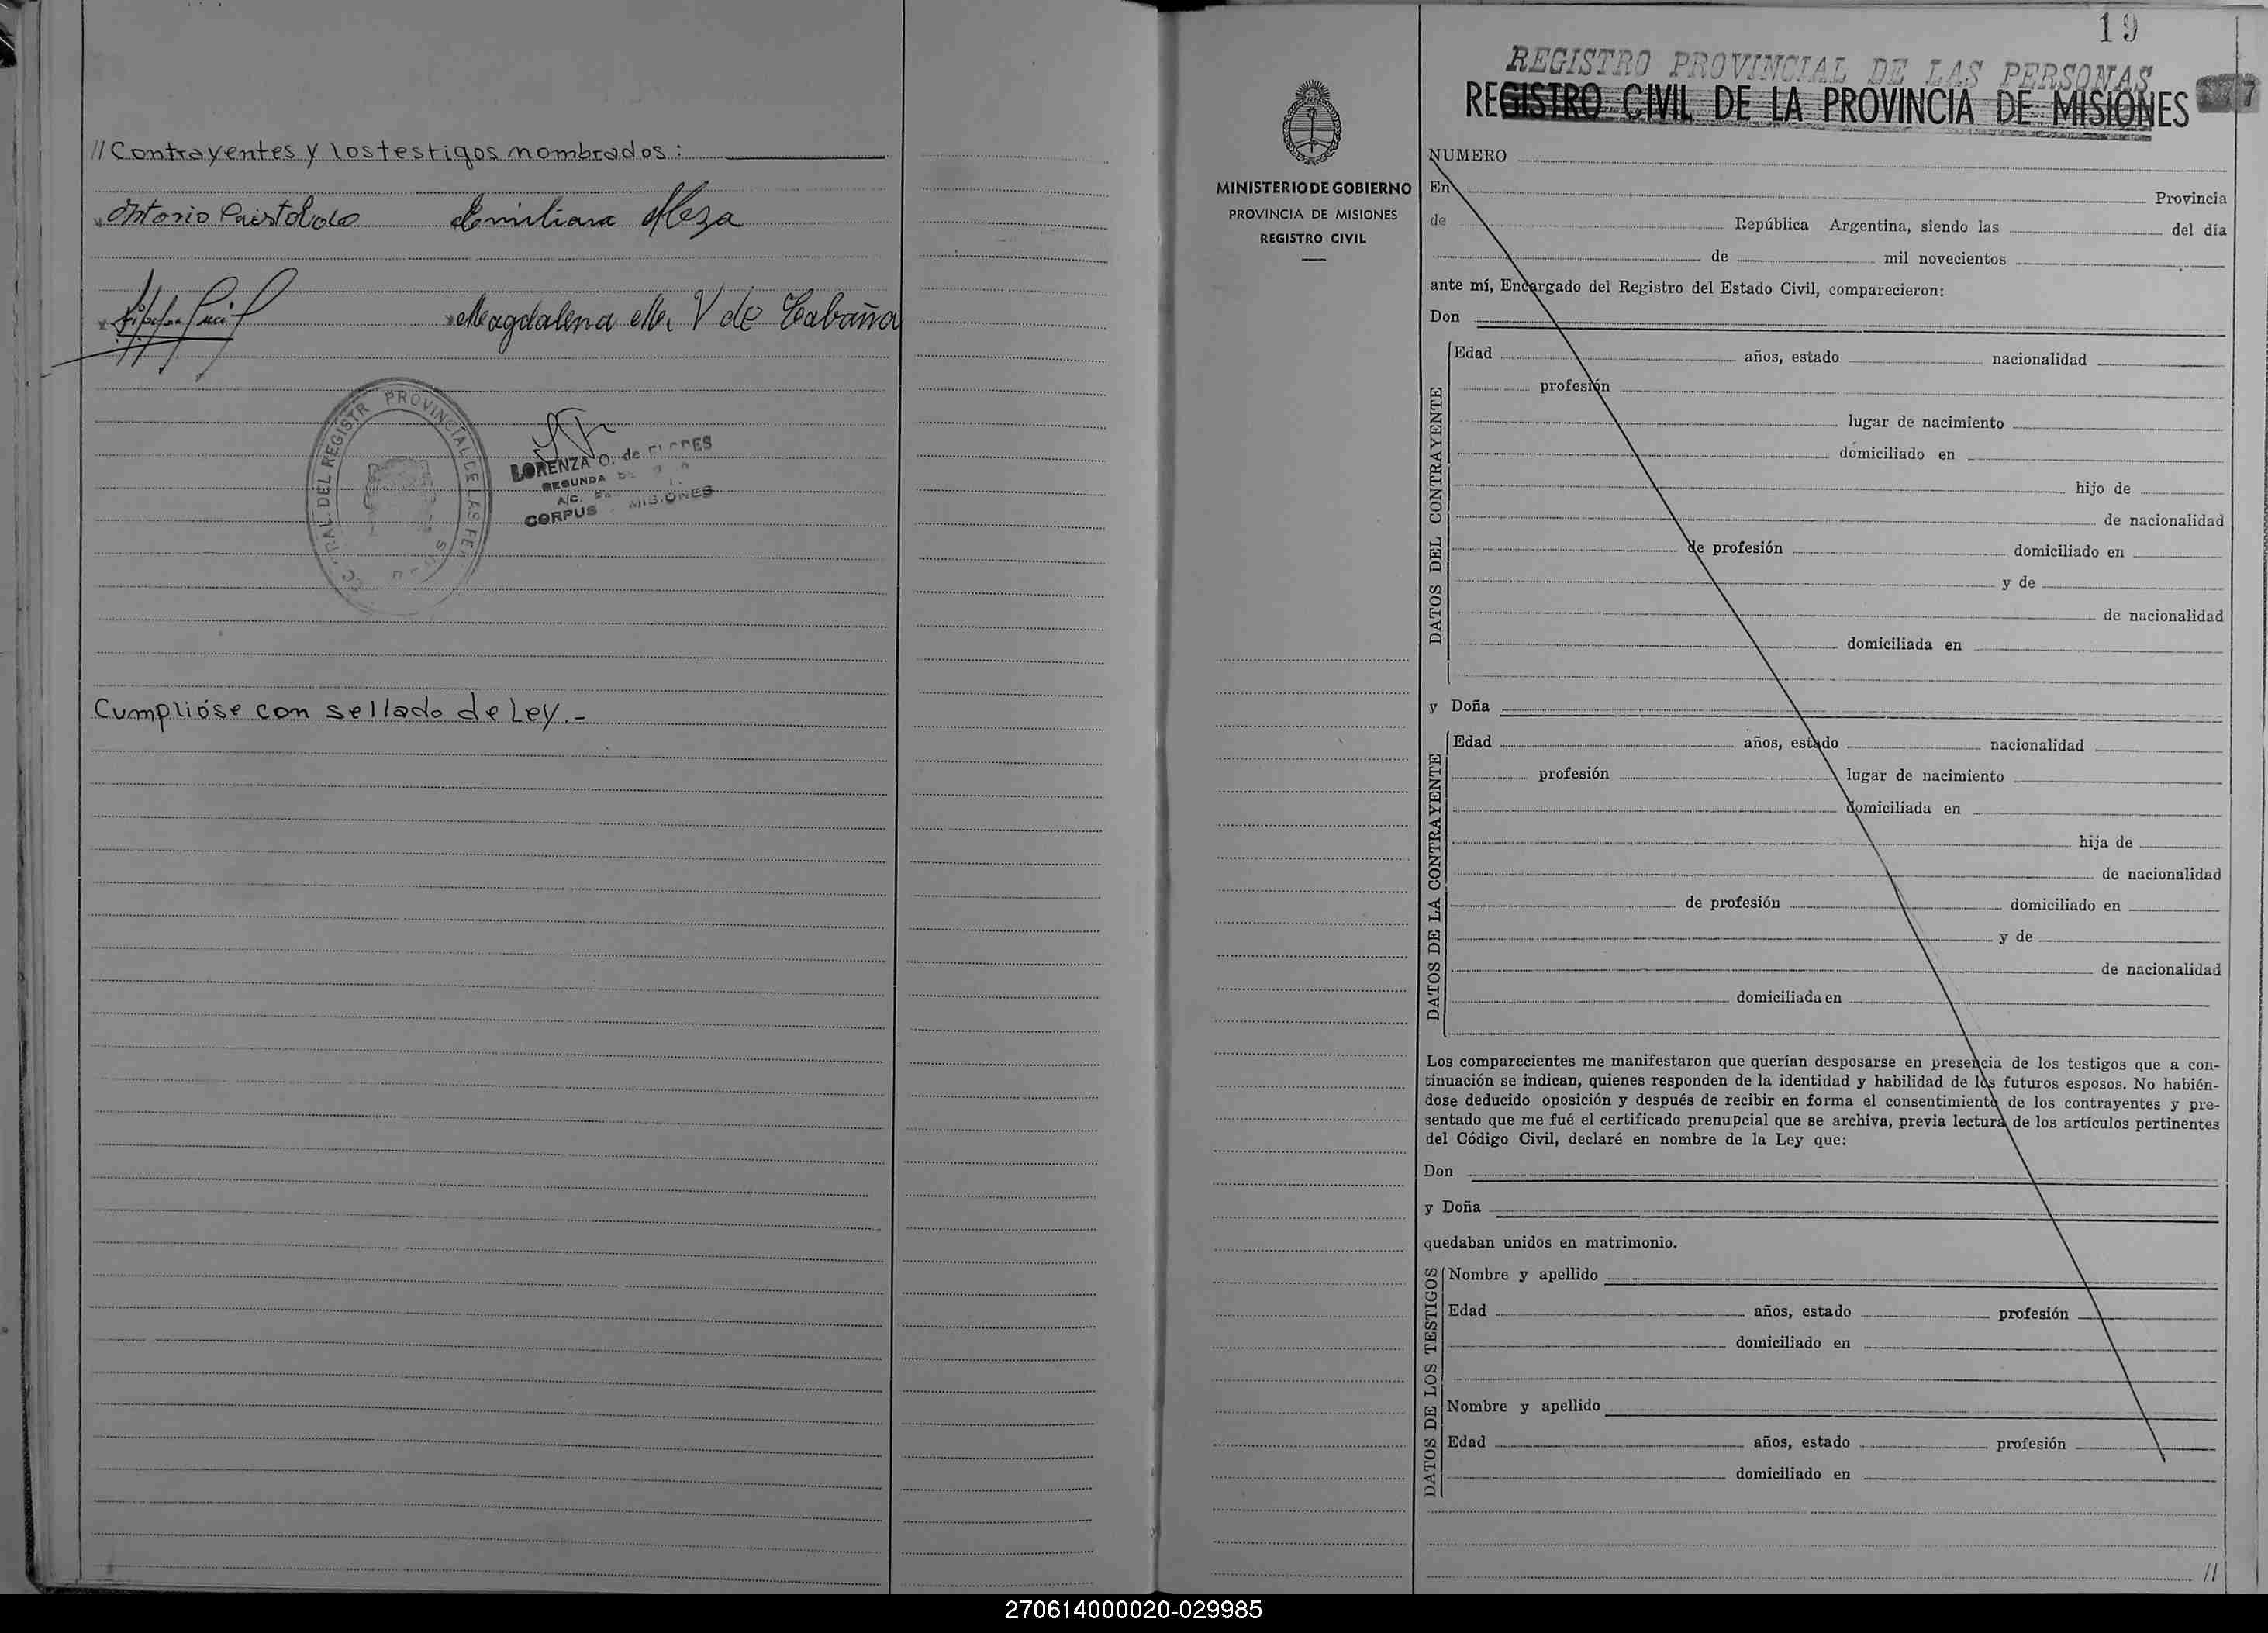 // Contrayentes y los testigos nombrados:
Emiliana Meza
Magdalena M. V de Cabaña
PROVINCIAL DE LAS
RAL DEL REGISTR
LORENZA O. de
SEGUNDA
A/C.
CORPUS - MISIONES
Cumplióse con sellado de Ley.-
19
REGISTRO PROVINCIAL DE LAS PERSONAS
REGISTRO CIVIL DE LA PROVINCIA DE MISIONES
7
MINISTERIO DE GOBIERNO
PROVINCIA DE MISIONES
REGISTRO CIVIL
NUMERO
En Provincia
de República Argentina, siendo las del día
de mil novecientos
ante mí, Encargado del Registro del Estado Civil, comparecieron:
Don
DATOS DEL CONTRAYENTE
Edad años, estado nacionalidad
profesión
lugar de nacimiento
domiciliado en
hijo de
de nacionalidad
de profesión domiciliado en
y de
de nacionalidad
domiciliada en
y Doña
DATOS DE LA CONTRAYENTE
Edad años, estado nacionalidad
profesión lugar de nacimiento
domiciliada en
hija de
de nacionalidad
de profesión domiciliado en
y de
de nacionalidad
domiciliada en
Los comparecientes me manifestaron que querían desposarse en presencia de los testigos que a con-
tinuación se indican, quienes responden de la identidad y habilidad de los futuros esposos. No habién-
dose deducido oposición y después de recibir en forma el consentimiento de los contrayentes y pre-
sentado que me fué el certificado prenupcial que se archiva, previa lectura de los artículos pertinentes
del Código Civil, declaré en nombre de la Ley que:
Don
y Doña
quedaban unidos en matrimonio.
DATOS DE LOS TESTIGOS
Nombre y apellido
Edad años, estado profesión
domiciliado en
Nombre y apellido
Edad años, estado profesión
domiciliado en
//
270614000020-029985